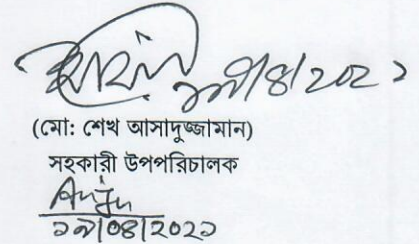 ১৯/৪/২০২১
(মো: শেখ আসাদুজ্জামান)
সহকারী উপপরিচালক
১৯/০৪/২০২১